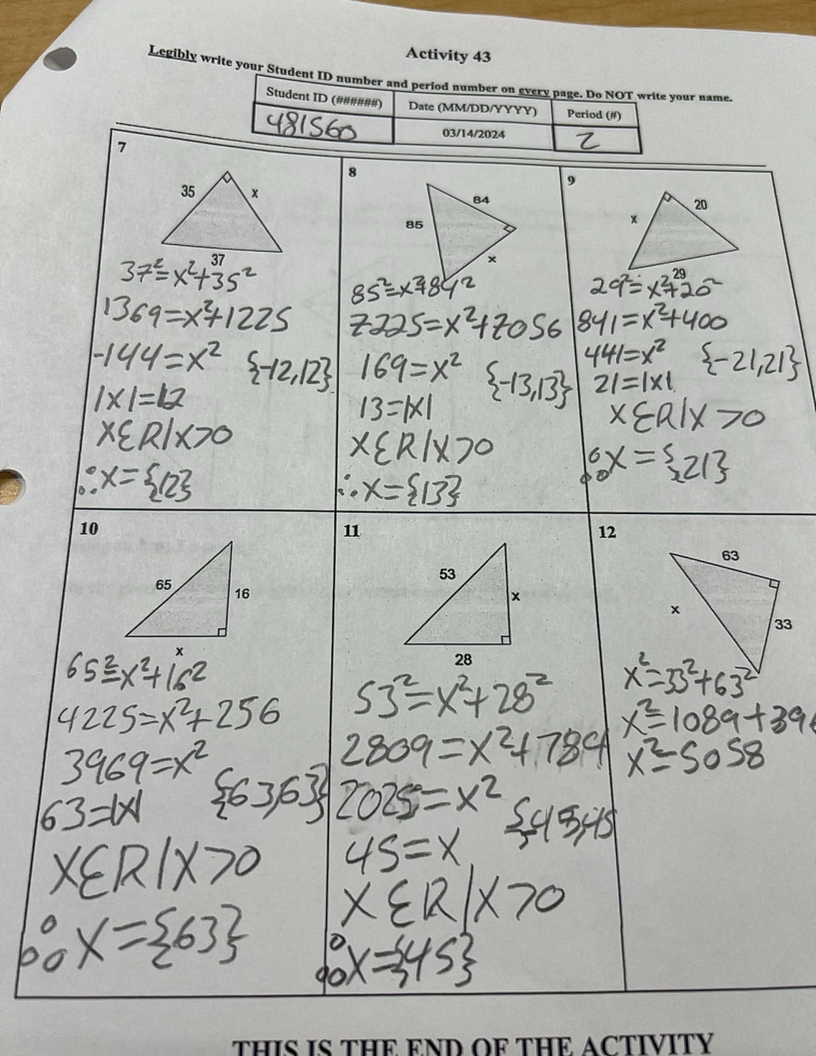 Activity 43
Legibly write your Student ID number and period number on every page. Do NOT write your name.
Student ID (######)
Date (MM/DD/YYYY)
Period (#)
481560
03/14/2024
2
7
35
x
37
37²=x²+35²
1369=x²+1225
-144=x² {-12,12}
|x|=12
XεR|X>0
∴x={12}
8
84
85
x
85²=x²+84²
7225=x²+7056
169=x² {-13,13}
13=|x|
XεR|X>0
∴x={13}
9
20
x
29
29²=x²+20²
841=x²+400
441=x² {-21,21}
21=|x|
XεR|X>0
∴x={21}
10
65
16
x
65²=x²+16²
4225=x²+256
3969=x²
63=|x| {63,63}
XεR|X>0
∴X={63}
11
53
x
28
53²=x²+28²
2809=x²+784
2025=x²
{45,45
45=x
XεR|X>0
∴X={45}
12
63
x
33
x²=33²+63²
x²=1089+396
x²=5058
THIS IS THE END OF THE ACTIVITY